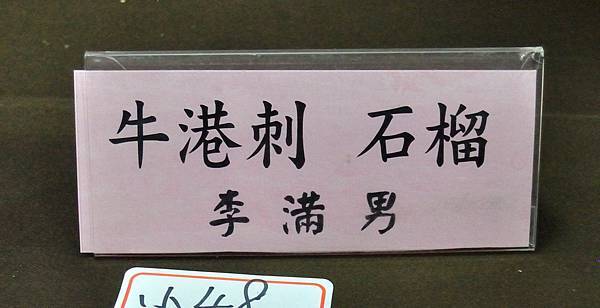 牛港刺 石榴
李滿男
48